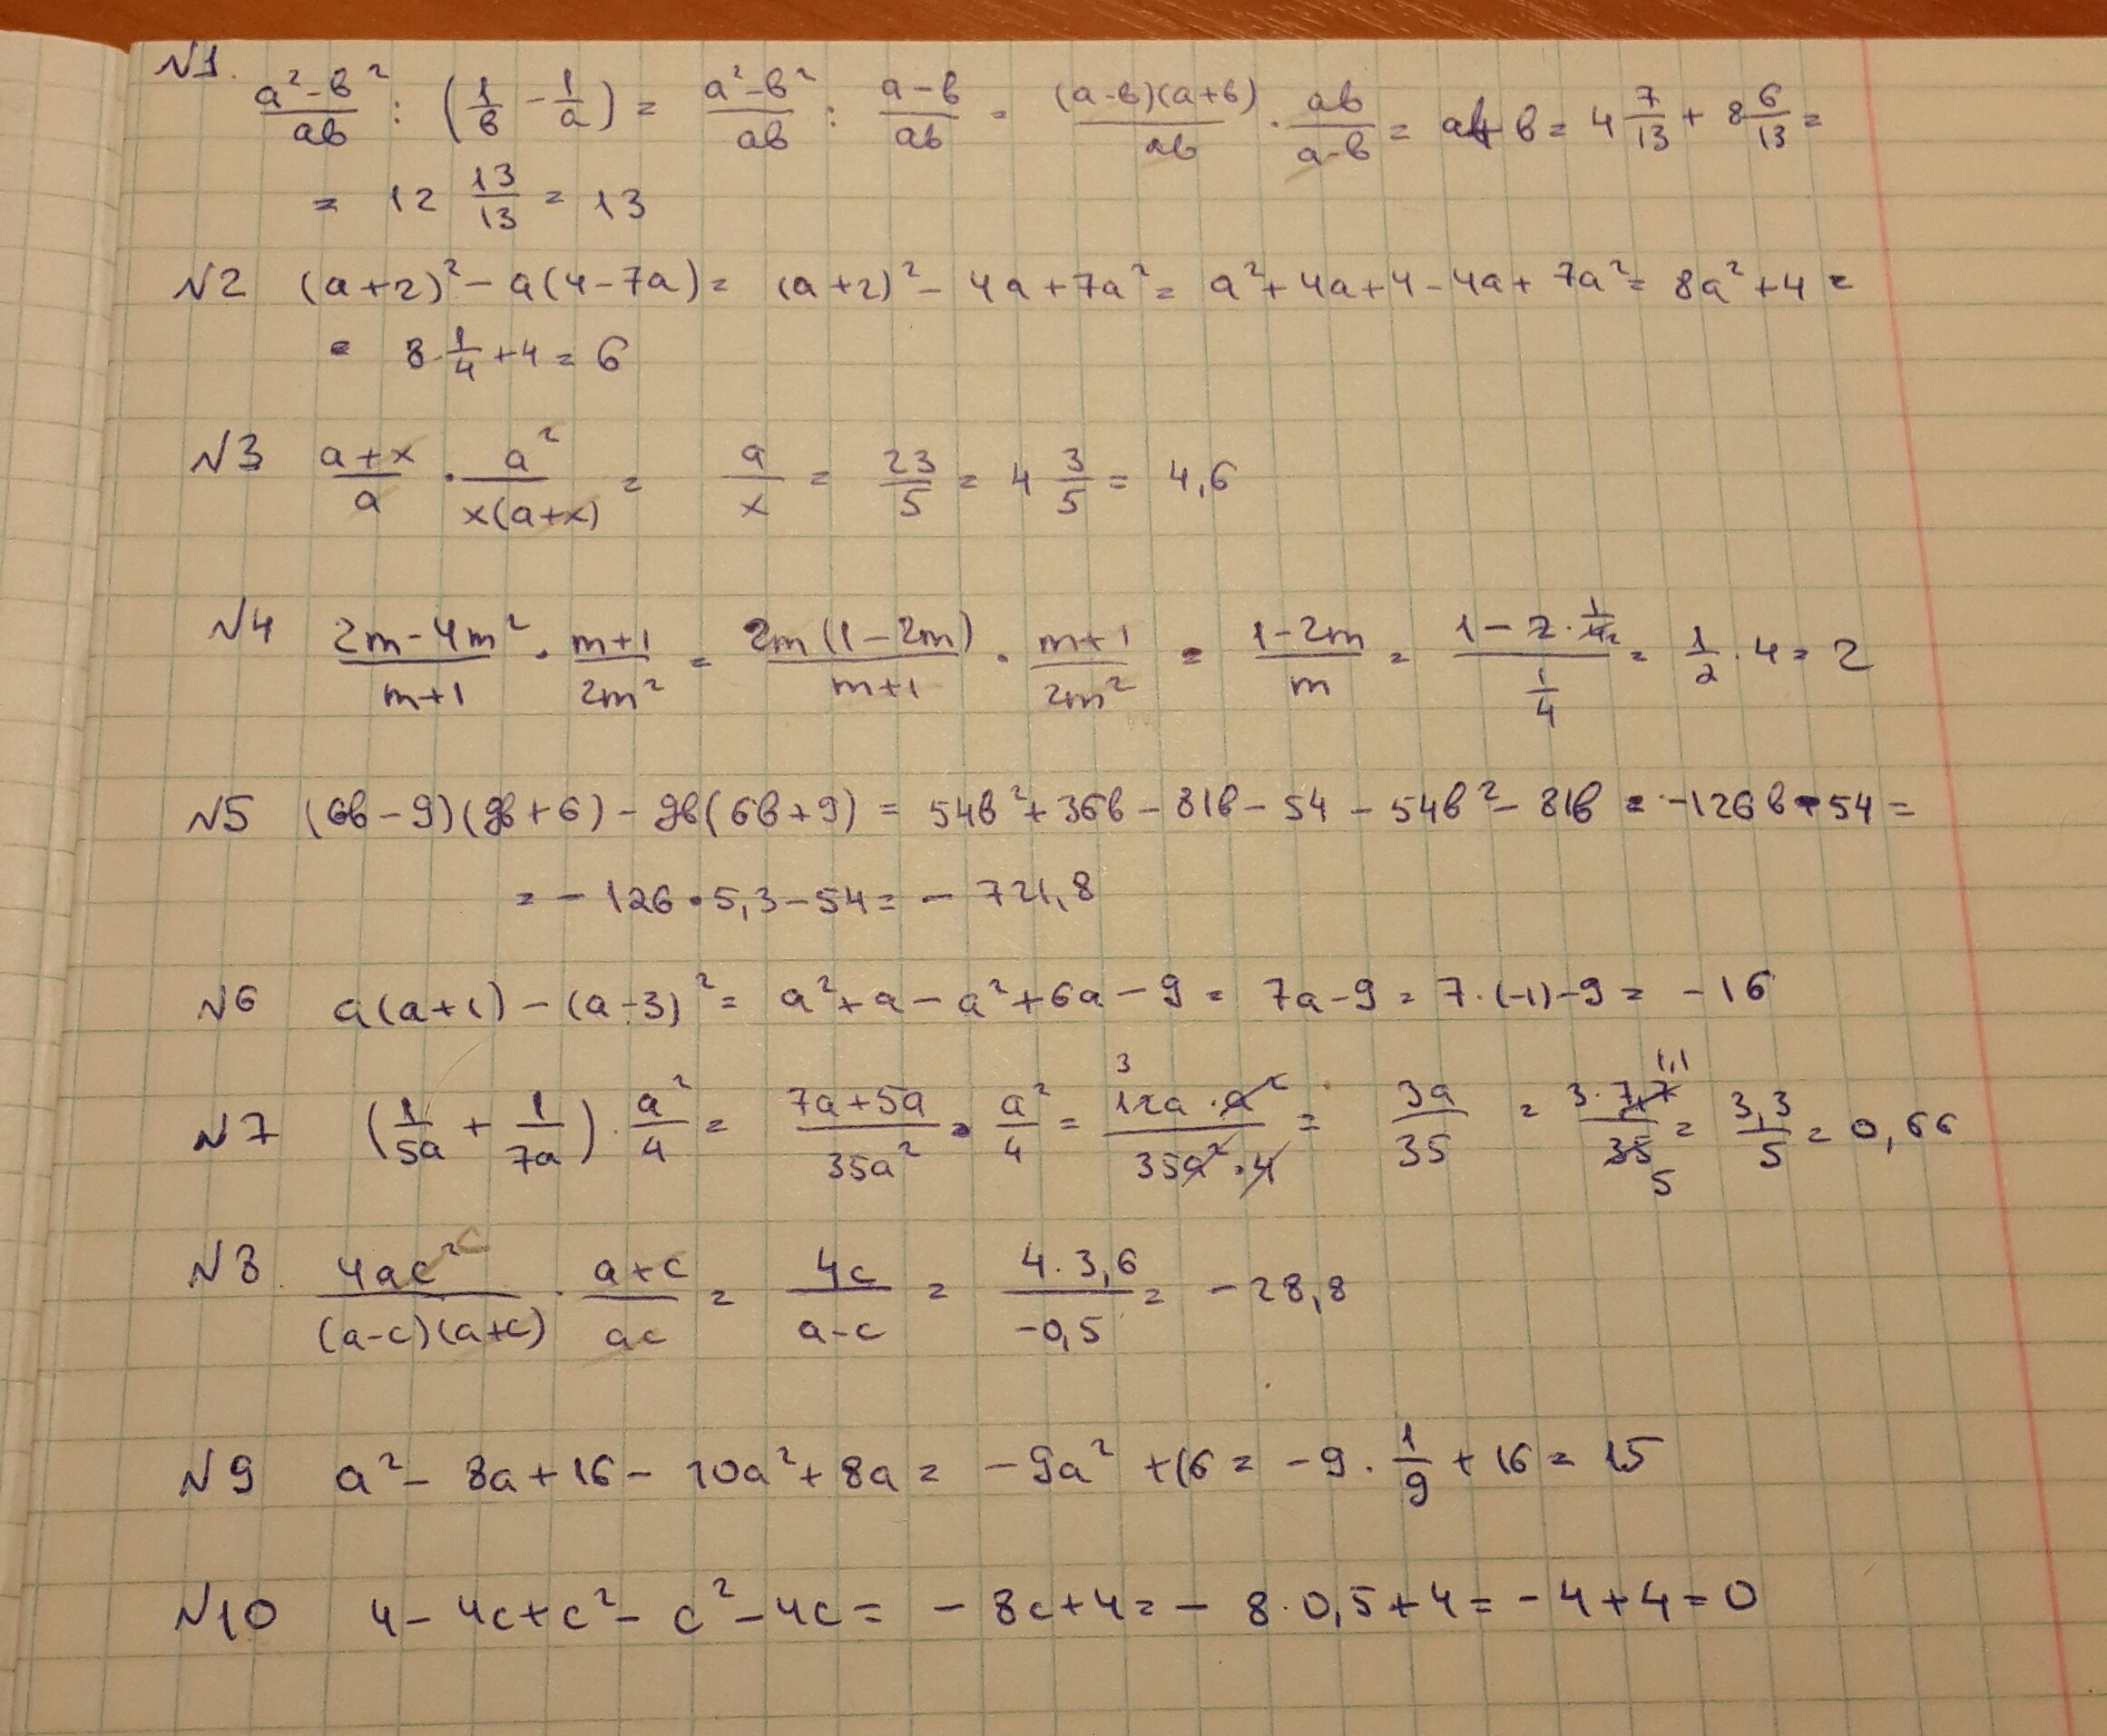 №1.
(a²-b²)/ab : (1/b - 1/a) = (a²-b²)/ab : (a-b)/ab = (a-b)(a+b)/ab · ab/(a-b) = a+b = 4 7/13 + 8 6/13 =
= 12 13/13 = 13
№2 (a+2)² - a(4-7a) = (a+2)² - 4a + 7a² = a² + 4a + 4 - 4a + 7a² = 8a² + 4 =
= 8 · 1/4 + 4 = 6
№3 (a+x)/a · a²/(x(a+x)) = a/x = 23/5 = 4 3/5 = 4,6
№4 (2m-4m²)/(m+1) · (m+1)/2m² = 2m(1-2m)/(m+1) · (m+1)/2m² = (1-2m)/m = (1-2·1/4)/(1/4) = 1/2 · 4 = 2
№5 (6b-9)(9b+6) - 9b(6b+9) = 54b² + 36b - 81b - 54 - 54b² - 81b = -126b - 54 =
= -126 · 5,3 - 54 = -721,8
№6 a(a+1) - (a-3)² = a² + a - a² + 6a - 9 = 7a - 9 = 7·(-1) - 9 = -16
№7 (1/5a + 1/7a) · a²/4 = (7a+5a)/35a² · a²/4 = 3 12a·a²/(35a²·4) = 3a/35 = 3·7,7 1,1/35 5 = 3,3/5 = 0,66
№8. 4ac² c/((a-c)(a+c)) · (a+c)/ac = 4c/(a-c) = 4·3,6/-0,5 = -28,8
№9 a² - 8a + 16 - 10a² + 8a = -9a² + 16 = -9 · 1/9 + 16 = 15
№10 4 - 4c + c² - c² - 4c = -8c + 4 = -8·0,5 + 4 = -4 + 4 = 0